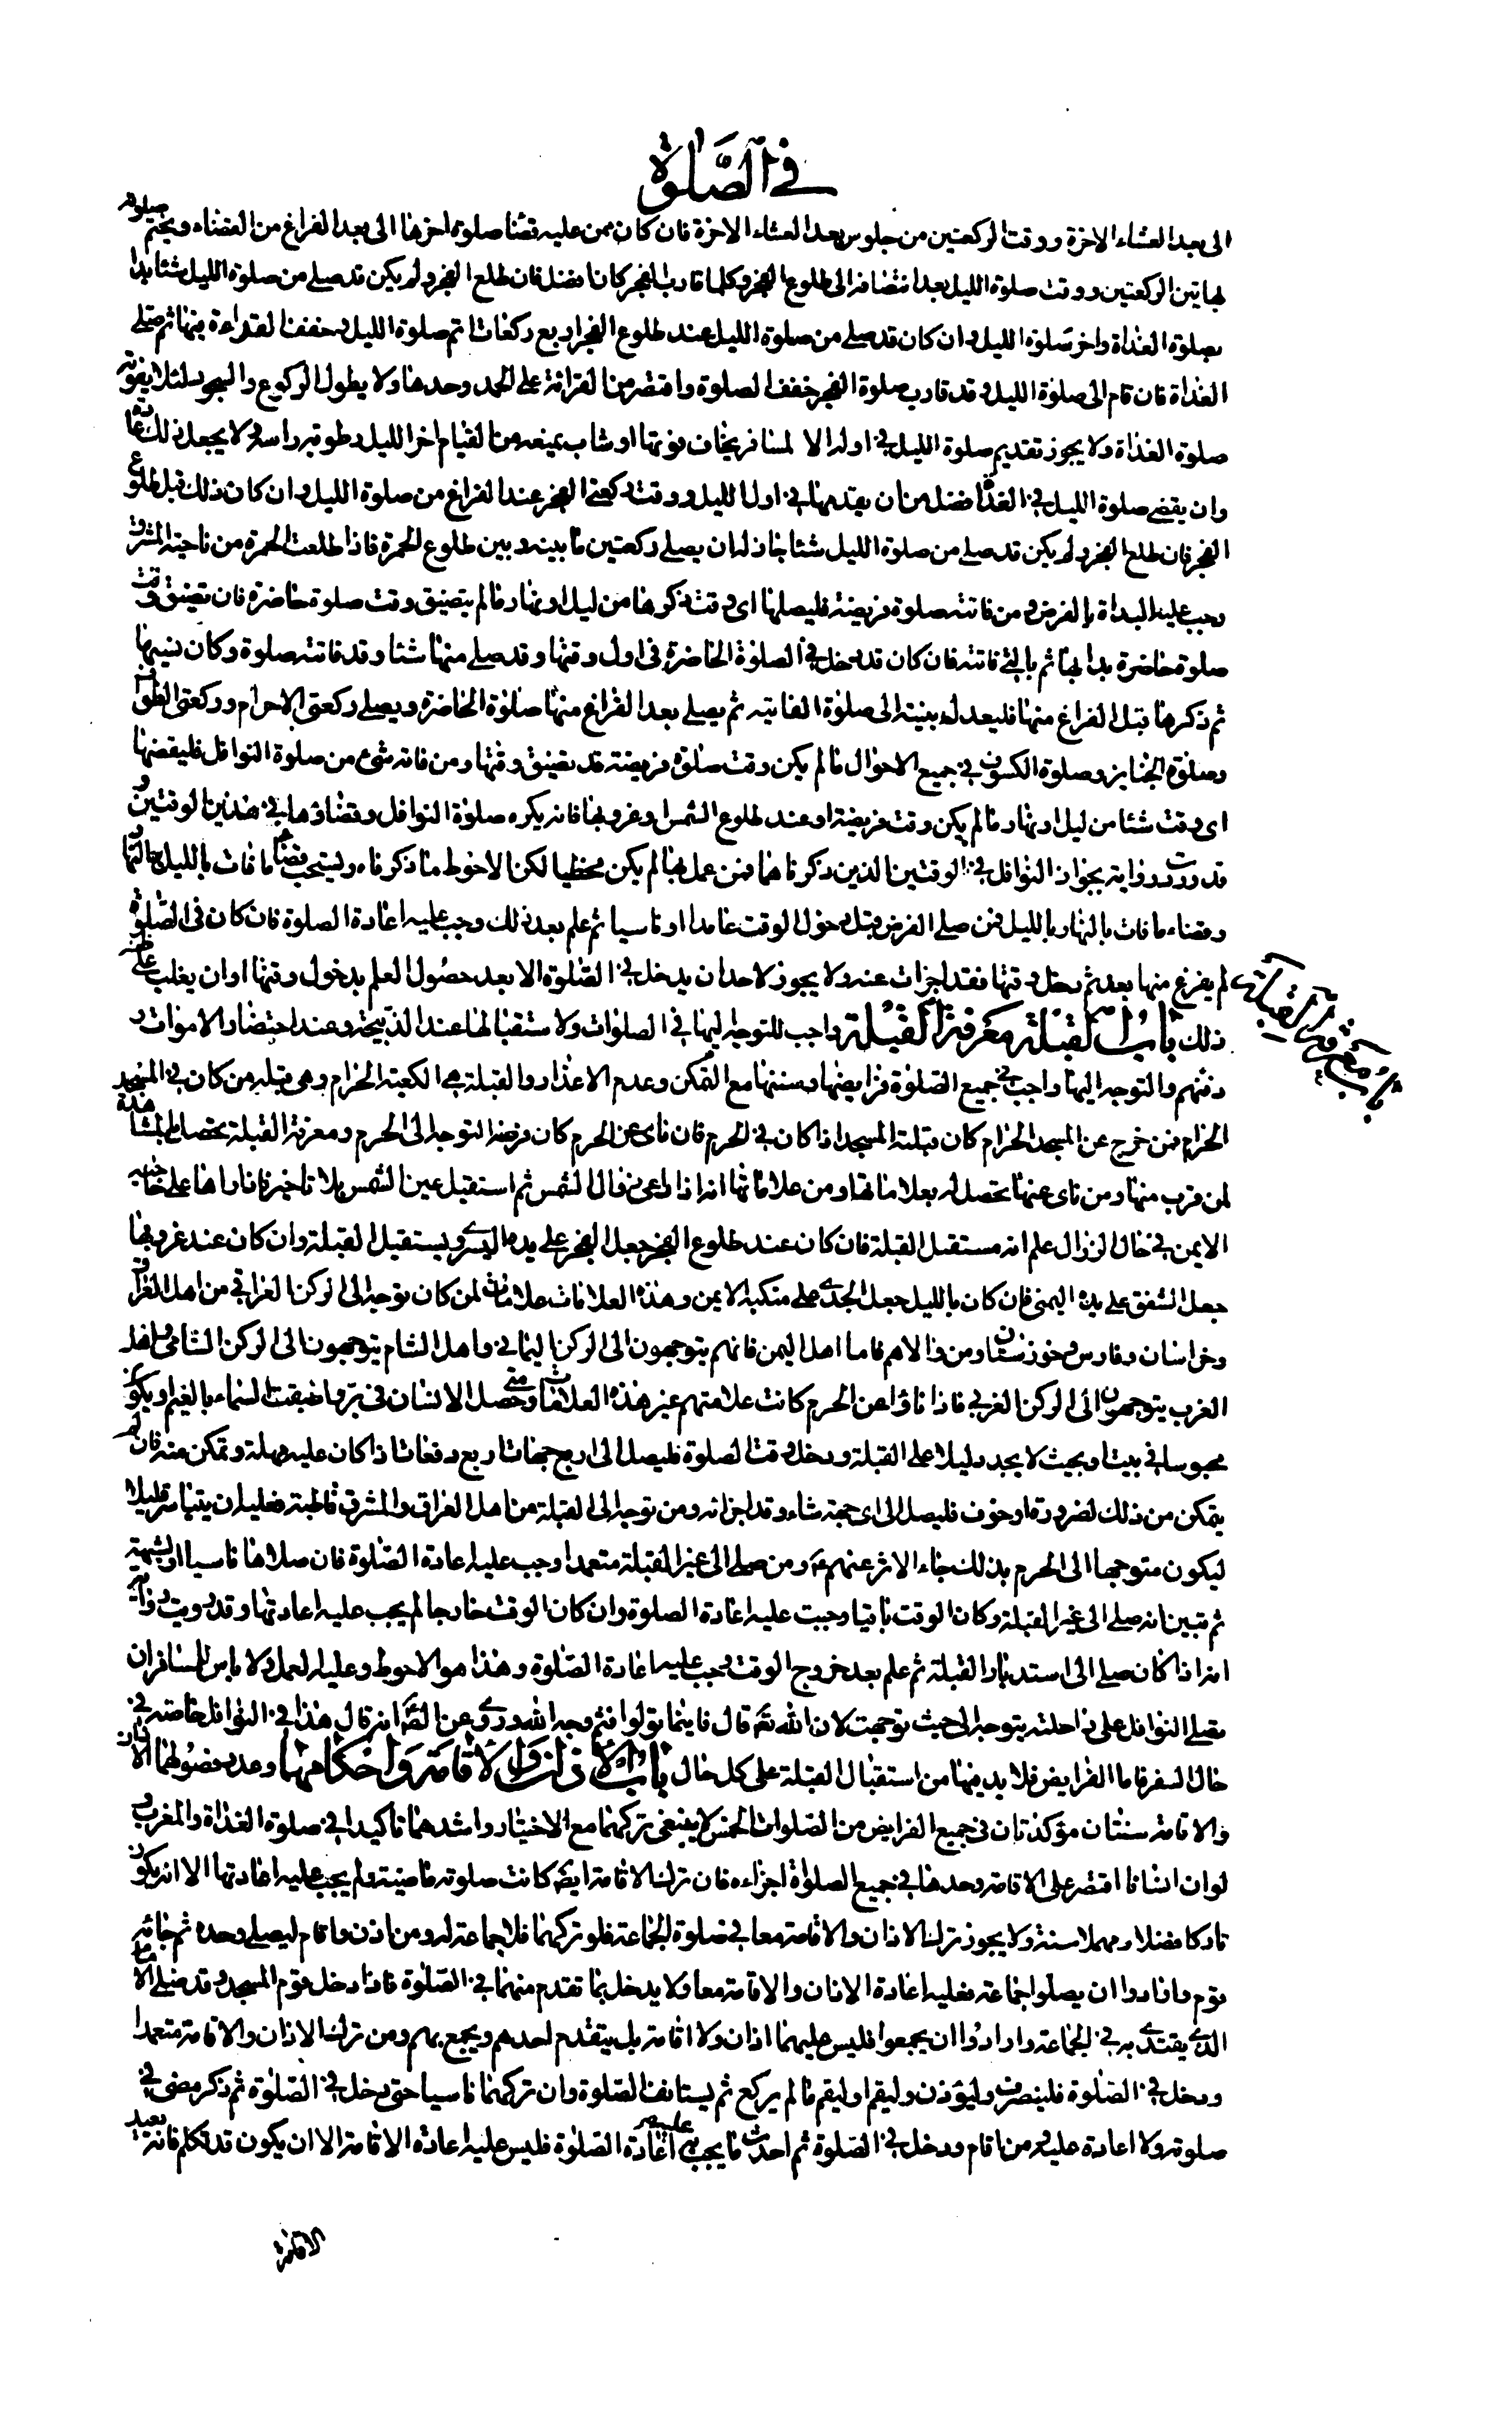 في الصلوة
الى بعد العشاء الاخرة ووقت الركعتين من جلوس بعد العشاء الاخرة فان كان ممن عليه قضاء صلوة اخرها الى بعد الفراغ من القضاء ويختم صلوته
بهاتين الركعتين ووقت صلوة الليل بعد انتصافه الى طلوع الفجر وكلما قارب الفجر كان افضل فان طلع الفجر ولم يكن قد صلى من صلوة الليل شئا بدا
بصلوة الغداة واخر صلوة الليل وان كان قد صلى من صلوة الليل عند طلوع الفجر اربع ركعات اتم صلوة الليل وخفف القراءة فيها ثم صلى
الغداة فان قام الى صلوة الليل وقد قارب صلوة الفجر خفف الصلوة واقتصر من القرائة على الحمد وحدها ولا يطول الركوع والسجود لئلا يفوته
صلوة الغداة ولا يجوز تقديم صلوة الليل في اوله الا لمسافر يخاف فوتها او شاب يمنعه من القيام اخر الليل رطوبة راسه ولا يجعل ذلك عادة
وان يقضي صلوة الليل في الغد افضل من ان يقدمها في اول الليل ووقت ركعتي الفجر عند الفراغ من صلوة الليل وان كان ذلك قبل طلوع
الفجر فان طلع الفجر ولم يكن قد صلى من صلوة الليل شئا جاز له ان يصلي ركعتين ما بينه وبين طلوع الحمرة فاذا طلعت الحمرة من ناحية المشرق
وجب عليه البداة بالفرض ومن فاتته صلوة فريضة فليصلها اي وقت ذكرها من ليل او نهار ما لم يتضيق وقت صلوة حاضرة فان تضيق وقت
صلوة حاضرة بدا بها ثم بالتي فاتته فان كان قد دخل في الصلوة الحاضرة في اول وقتها وقد صلى منها شئا وقد فاتته صلوة وكان نسيها
ثم ذكرها قبل الفراغ منها فليعدل بنيته الى صلوة الفايتة ثم يصلي بعد الفراغ منها صلوة الحاضرة ويصلي ركعتي الاحرام وركعتي الطواف
وصلوة الجنايز وصلوة الكسوف في جميع الاحوال ما لم يكن وقت صلوة فريضة قد تضيق وقتها ومن فاته شئ من صلوة النوافل فليقضها
اي وقت شئا من ليل او نهار ما لم يكن وقت فريضة او عند طلوع الشمس وغروبها فانه يكره صلوة النوافل وقضاؤها في هذين الوقتين و
قد وردت رواية بجواز النوافل في الوقتين الذين ذكرناهما فمن عمل بها لم يكن مخطيا لكن الاحوط ما ذكرناه ويستحب قضاء ما فات بالليل بالنهار
وقضاء ما فات بالنهار بالليل فمن صلى الفرض قبل دخول الوقت عامدا او ناسيا ثم علم بعد ذلك وجب عليه اعادة الصلوة فان كان في الصلوة
لم يفرغ منها بعد ثم دخل وقتها فقد اجزات عنه ولا يجوز لاحد ان يدخل في الصلوة الا بعد حصول العلم بدخول وقتها او ان يغلب على ظنه
ذلك باب القبلة معرفة القبلة واجب للتوجه اليها في الصلوات ولاستقبالها عند الذبيحة وعند احتضار الاموات و
دفنهم والتوجه اليها واجب في جميع الصلوة فرايضها وسننها مع التمكن وعدم الاعذار والقبلة هي الكعبة الحرام وهي قبلة من كان في المسجد
الحرام فمن خرج عن المسجد الحرام كان قبلته المسجد اذا كان في الحرم فان ناى عن الحرم كان فرضه التوجه الى الحرم ومعرفة القبلة تحصل بالمشاهدة
لمن قرب منها ومن ناى عنها تحصل له بعلاماتها ومن علاماتها انه اذا راعى زوال الشمس ثم استقبل عين الشمس بلا تاخير فاذا راها على حاجبه
الايمن في حال الزوال علم انه مستقبل القبلة فان كان عند طلوع الفجر جعل الفجر على يده اليسرى ويستقبل القبلة وان كان عند غروبها
جعل الشفق على يده اليمنى فان كان بالليل جعل الجدي على منكبه الايمن وهذه العلامات علامات لمن كان توجه الى الركن العراقي من اهل العراق
وخراسان وفارس وخوزستان ومن والاهم فاما اهل اليمن فانهم يتوجهون الى الركن اليماني واهل الشام يتوجهون الى الركن الشامي واهل
الغرب يتوجهون الى الركن الغربي فاذا ناؤا عن الحرم كانت علامتهم غير هذه العلامات ومتى حصل الانسان في بر واطبقت السماء بالغيم او يكون
محبوسا في بيت او بحيث لا يجد دليلا على القبلة ودخل وقت الصلوة فليصل الى اربع جهات اربع دفعات اذا كان عليه مهلة وتمكن منه فان لم
يتمكن من ذلك لضرورة او خوف فليصل الى اي جهة شاء وقد اجزاته ومن توجه الى القبلة من اهل العراق والمشرق قاطبة فعليه ان يتياسر قليلا
ليكون متوجها الى الحرم بذلك جاء الاثر عنهم ع ومن صلى الى غير القبلة متعمدا وجب عليه اعادة الصلوة فان صلاها ناسيا او لشبهة
ثم تبين انه صلى الى غير القبلة وكان الوقت باقيا وجبت عليه اعادة الصلوة وان كان الوقت خارجا لم يجب عليه اعادتها وقد رويت رواية
انه اذا كان صلى الى استدبار القبلة ثم علم بعد خروج الوقت وجب عليه اعادة الصلوة وهذا هو الاحوط وعليه العمل ولا باس للمسافر ان
يصلي النوافل على راحلته يتوجه الى حيث توجهت لان الله تع قال فاينما تولوا فثم وجه الله وروي عن الصم انه قال هذا في النوافل خاصة في
حال السفر فاما الفرايض فلا بد فيها من استقبال القبلة على كل حال باب الاذان والاقامة واحكامهما وعدد فصولهما الاذان
والاقامة سنتان مؤكدتان في جميع الفرايض من الصلوات الخمس لا ينبغي تركهما مع الاختيار واشدهما تاكيدا في صلوة الغداة والمغرب و
لو ان انسانا اقتصر على الاقامة وحدها في جميع الصلوات اجزاءه فان ترك الاقامة ايضا كانت صلوته ماضية ولم يجب عليه اعادتها الا انه يكون
تاركا فضلا ومهملا سنة ولا يجوز ترك الاذان والاقامة معا في صلوة الجماعة فلو تركهما فلا جماعة له ومن اذن واقام ليصلي وحده ثم جائه
قوم وارادوا ان يصلوا جماعة فعليه اعادة الاذان والاقامة معا ولا يدخل بما تقدم منهما في الصلوة فاذا دخل قوم المسجد وقد صلى الامام
الذي يقتدى به في الجماعة وارادوا ان يجمعوا فليس عليهم اذان ولا اقامة بل يتقدم احدهم ويجمع بهم ومن ترك الاذان والاقامة متعمدا
ودخل في الصلوة فلينصرف وليؤذن وليقم او ليقم ما لم يركع ثم يستانف الصلوة وان تركهما ناسيا حتى دخل في الصلوة ثم ذكر مضى في
صلوته ولا اعادة عليه ومن اقام ودخل في الصلوة ثم احدث ما يجب عليه به اعادة الصلوة فليس عليه اعادة الاقامة الا ان يكون قد تكلم فانه يعيد
الاقامة
باب معرفة القبلة